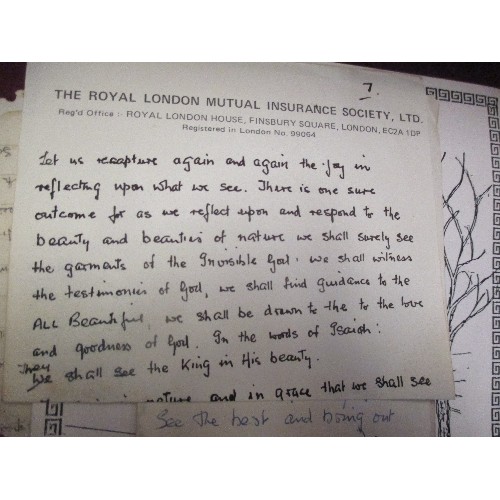 7.
THE ROYAL LONDON MUTUAL INSURANCE SOCIETY, LTD.
Reg'd Office :- ROYAL LONDON HOUSE, FINSBURY SQUARE, LONDON, EC2A 1DP
Registered in London No. 99064
Let us recapture again and again the joy in
reflecting upon what we see. There is one sure
outcome for as we reflect upon and respond to the
beauty and beauties of nature we shall surely see
the garments of the Invisible God: we shall witness
the testimonies of God, we shall find guidance to the
ALL Beautiful, we shall be drawn to the to the love
and goodness of God. In the words of Isaiah:
They
We shall see the King in His beauty.
nature and in grace that we shall see
See the best and bring out